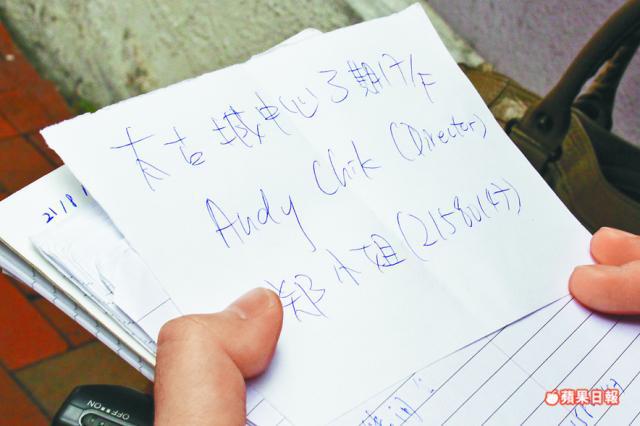 太古城中心3期17/F
Andy Chik (Director)
郑小姐(21580147)
21/8
OFF ON
蘋果日報